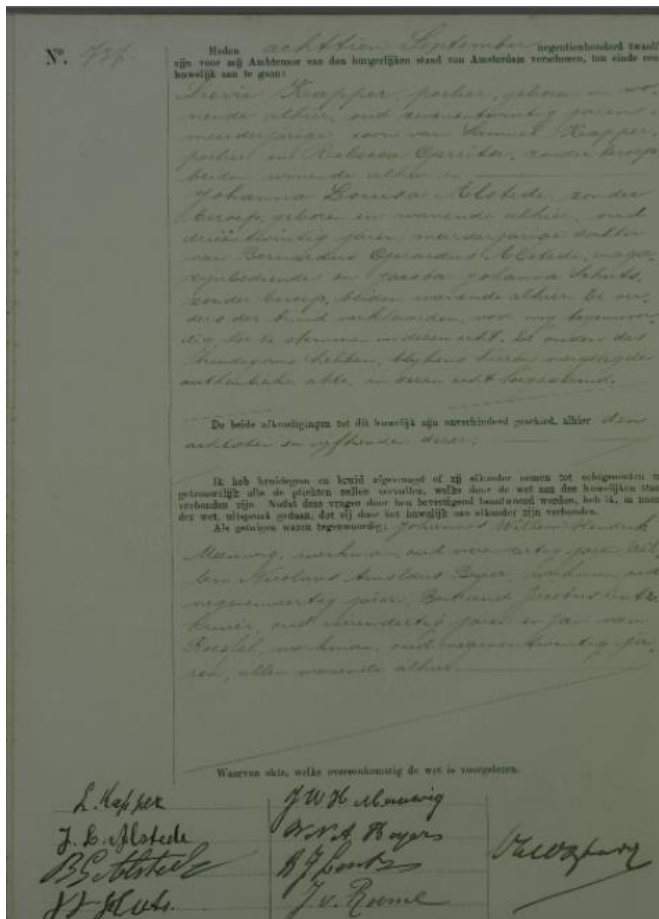 No. 737.
Heden achttien September negentienhonderd twaalf
zijn voor mij Ambtenaar van den burgerlijken stand van Amsterdam verschenen, ten einde een
huwelijk aan te gaan:
Levie Kapper, portier, geboren en wo-
nende alhier, oud zevenentwintig jaren,
meerderjarige zoon van Samuel Kapper,
portier en Rebecca Gerritse, zonder beroep,
beiden wonende alhier en
Johanna Louisa Alstede, zonder
beroep, geboren en wonende alhier, oud
drieëntwintig jaren, meerderjarige dochter
van Bernardus Gerardus Alstede, maga-
zijnbediende en Jacoba Johanna Schuts,
zonder beroep, beiden wonende alhier. De ou-
ders der bruid verklaarden, voor mij tegenwoor-
dig toe te stemmen in dezen echt. De ouders des
bruidegoms hebben, blijkens hierbij overgelegde
authentieke akte, in dezen echt toegestemd.
De beide afkondigingen tot dit huwelijk zijn onverhinderd geschied, alhier den
achtsten en vijftienden dezer.
Ik heb bruidegom en bruid afgevraagd of zij elkander nemen tot echtgenooten en
getrouwelijk alle de plichten zullen vervullen, welke door de wet aan den huwelijken staat
verbonden zijn. Nadat deze vragen door hen bevestigend beantwoord werden, heb ik, in naam
der wet, uitspraak gedaan, dat zij door het huwelijk aan elkander zijn verbonden.
Als getuigen waren tegenwoordig: Johannes Willem Hendrik
Meuwig, werkman oud jaren, Wil-
lem Nicolaas Arnoldus, werkman oud
negenenveertig jaren, Bertrand Jacobus
oud vierendertig jaren en Jan van
werkman, oud negenentwintig ja-
ren, allen wonende alhier
Waarvan akte, welke overeenkomstig de wet is voorgelezen.
L. Kapper
J. L. Alstede
B G Alstede
J W H Meuwig
W. N. A.
J. v.